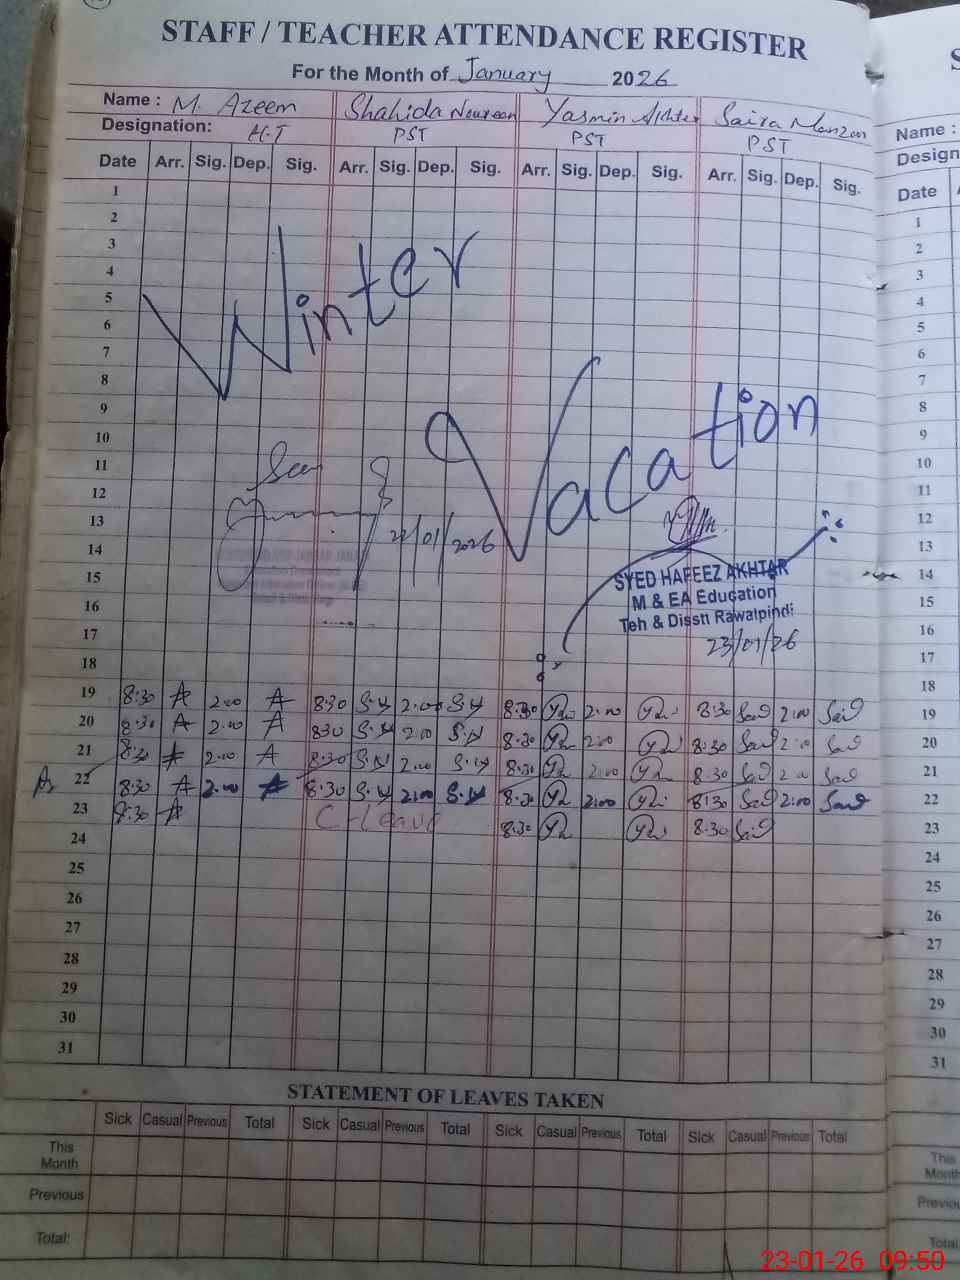 STAFF / TEACHER ATTENDANCE REGISTER
For the Month of January 2026
Name : M. Azeem Shahida Noureen Yasmin Akhter Saira Manzoor
Designation: H.T PST PST PST
Date Arr. Sig. Dep. Sig. Arr. Sig. Dep. Sig. Arr. Sig. Dep. Sig. Arr. Sig. Dep. Sig.
1
2
3
4
5
6
7
8
9
10
11
12
13
14
15
16
17
18
Winter
Vacation
22/01/2026
SYED HAFEEZ AKHTAR
M & EA Education
Teh & Disstt Rawalpindi
23/01/26
19 8:30 A 2:00 A 8:30 S.N 2:00 S.N 8:30 2:00 8:30 Sai 2:00 Sai
20 8:30 A 2:00 A 830 S.N 2:00 S.N 8:30 2:00 8:30 Sai 2:00 Sai
21 8:30 A 2:00 A 8:30 S.N 2:00 S.N 8:30 2:00 8:30 Sai 2:00 Sai
22 8:30 A 2:00 A 8:30 S.N 2:00 S.N 8:30 2:00 8:30 Sai 2:00 Sai
23 8:30 A C-Leave 8:30 8:30 Sai
24
25
26
27
28
29
30
31
STATEMENT OF LEAVES TAKEN
Sick Casual Previous Total Sick Casual Previous Total Sick Casual Previous Total Sick Casual Previous Total
This
Month
Previous
Total:
Name :
Design
Date
1
2
3
4
5
6
7
8
9
10
11
12
13
14
15
16
17
18
19
20
21
22
23
24
25
26
27
28
29
30
31
This
Month
Previous
Total
23-01-26 09:50